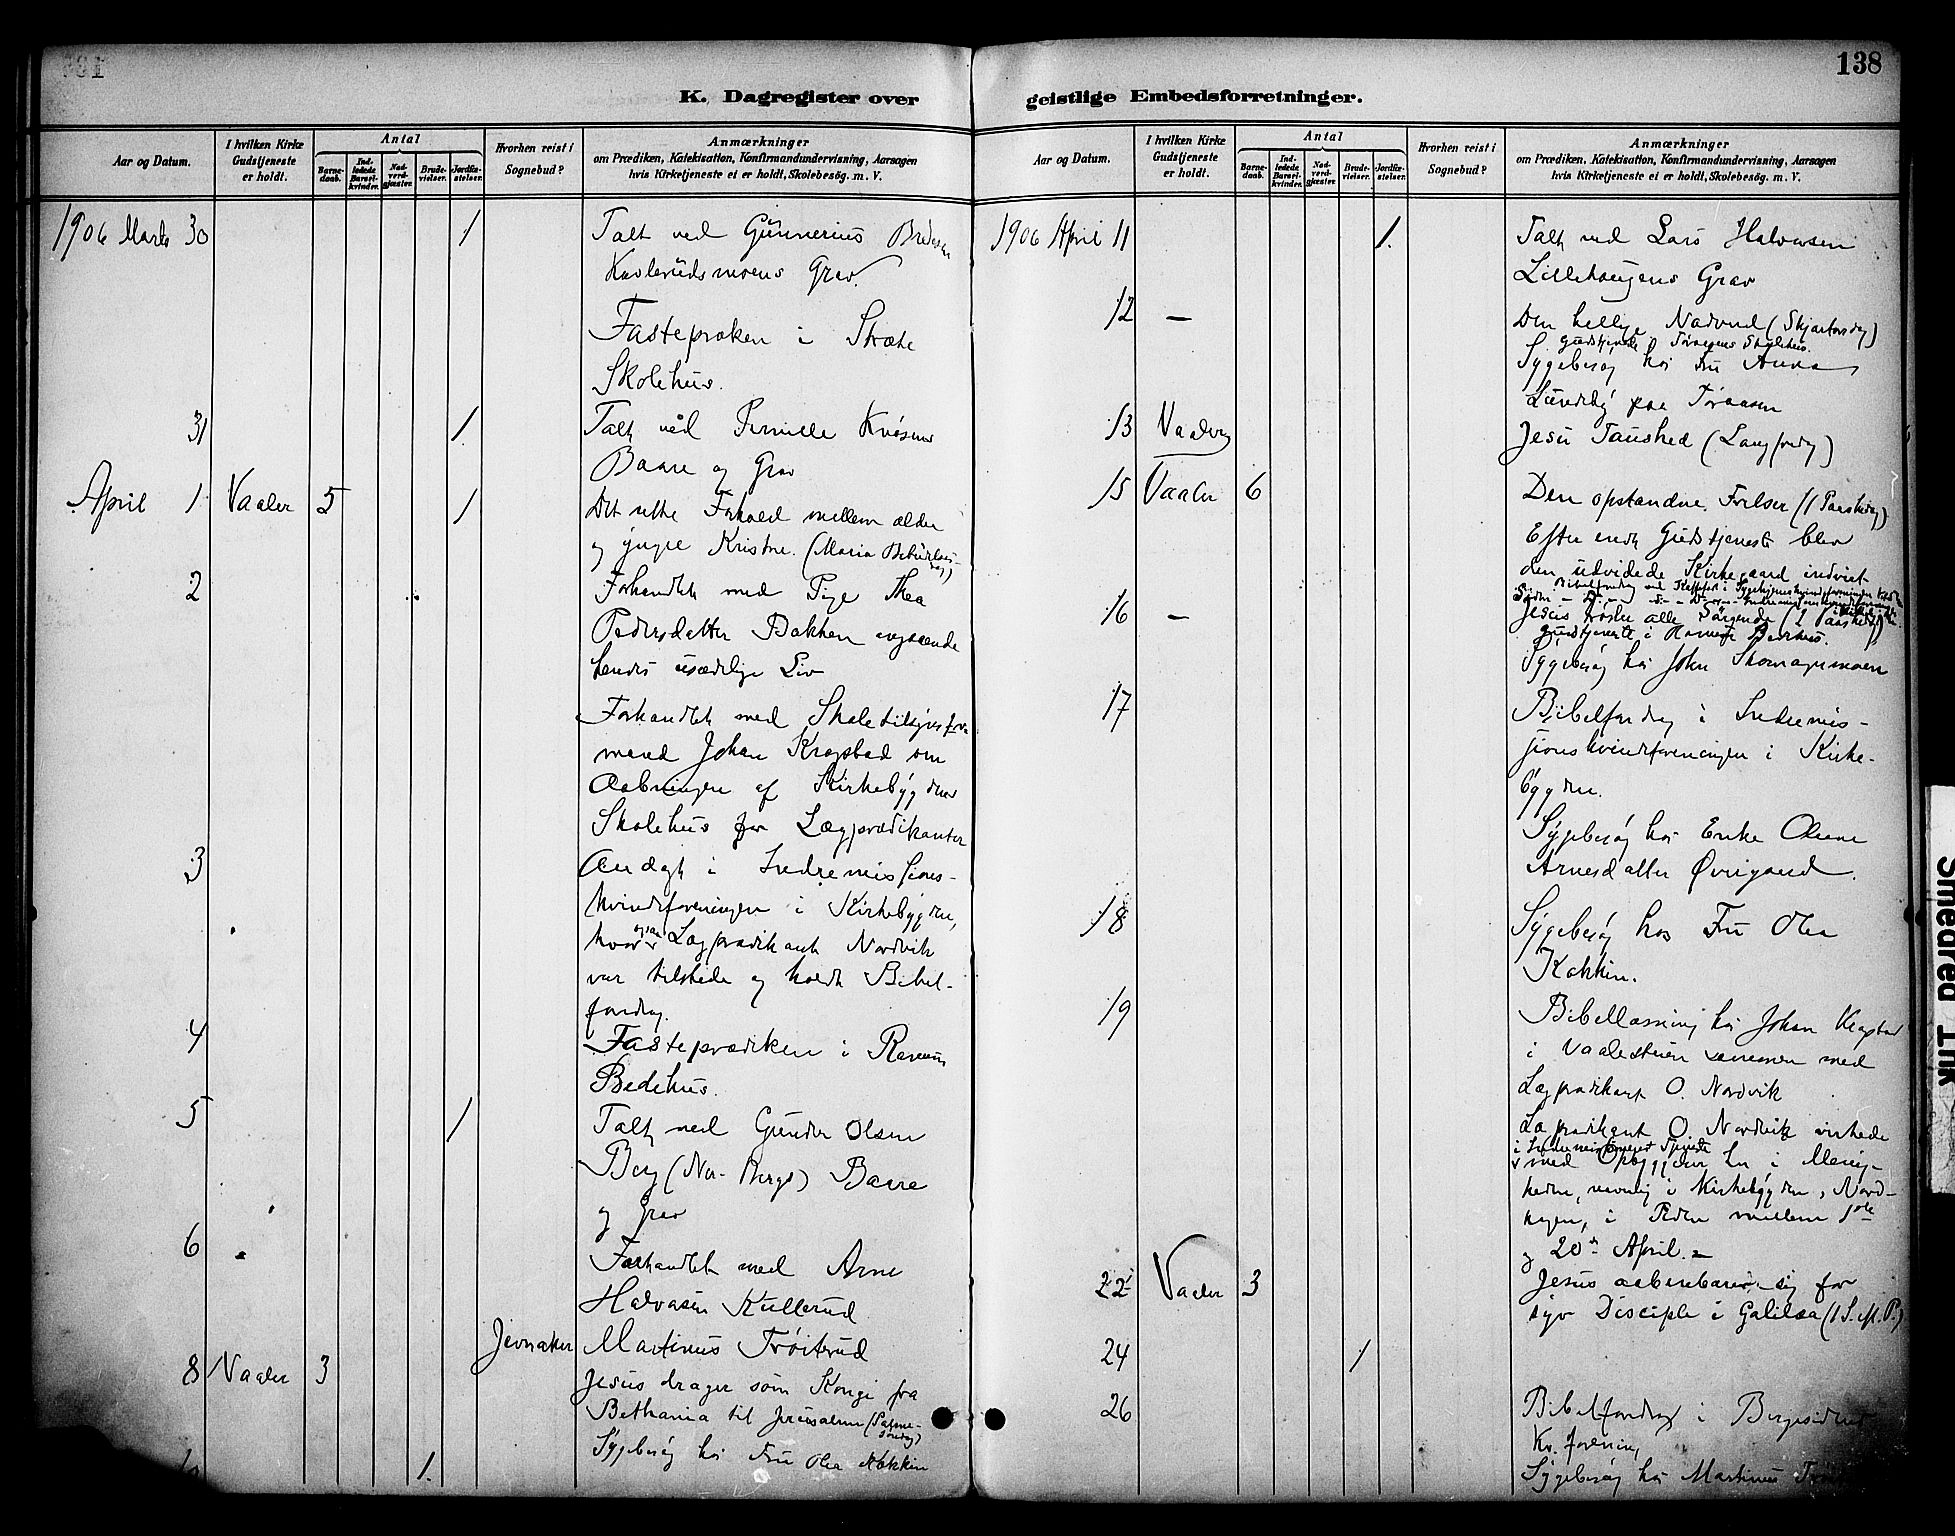 138
K. Dagregister over geistlige Embedsforretninger.
Aar og Datum.
I hvilken Kirke Gudstjeneste er holdt.
Antal
Barne-daab.
Ind-ledede Barsel-kvinder.
Nad-verd-gjæster.
Brude-vielser.
Jordfæ-stelser.
Hvorhen reist i Sognebud?
Anmærkninger
om Prædiken, Katekisation, Konfirmandundervisning, Aarsagen
hvis Kirketjeneste ei er holdt, Skolebesög. m. V.
1906 Marts 30 1 Talt ved Gunnerius
Grav.
Fastepræken i Stræte
Skolehus.
31 1 Talt ved Pernille
Baare og Grav
April 1 Vaaler 5 1 Det rette Forhold mellem ældre
og yngre Kristne. (Maria Bebudelsesdag)
2 Forhandlet med Pige Thea
Pedersdatter Bakken angaaende
hendes usædelige Liv
Forhandlet med Skoletilsynsfor-
mand Johan Krogstad om
Aabningen af Kirkebygdens
Skolehus for Lægprædikanter
3 Andagt i Indremissions-
kvindeforeningen i Kirkebygden,
hvor ogsaa Lægprædikant Nordvik
var tilstede og holdt Bibel-
foredrag.
4 Fasteprædiken i
Bedehus.
5 1 Talt ved Gunder Olsen
Berg (Nor-Bergs) Baare
og Grav
6 Forhandlet med Arne
Halvorsen Kullerud
Jevnaker Martinus Trøiterud
8 Vaaler 3 Jesus drager som Konge fra
Bethania til Jerusalem (Palme-
søndag)
Sygebesøg hos Fru Olea Kokkin
10 1.
Aar og Datum.
I hvilken Kirke Gudstjeneste er holdt.
Antal
Barne-daab.
Ind-ledede Barsel-kvinder.
Nad-verd-gjæster.
Brude-vielser.
Jordfæ-stelser.
Hvorhen reist i Sognebud?
Anmærkninger
om Prædiken, Katekisation, Konfirmandundervisning, Aarsagen
hvis Kirketjeneste ei er holdt, Skolebesög. m. V.
1906 April 11 1. Talt ved Lars Halvorsen
Lillehaugens Grav
12 — Den hellige Nadverd (Skjærtorsdag)
Gudstjeneste i Skolehus.
Sygebesøg hos Fru Anna
Lundeby paa Toraasen
13 Vaaler Jesu Taushed (Langfredag)
15 Vaaler 6 Den opstandne Frelser (1 Paaskedag)
Efter endt Gudstjeneste blev
den udvidede Kirkegaard indviet
16 — Jesus trøster alle Sørgende (2 Paaskedag)
Gudstjeneste i Bedehus.
Sygebesøg hos John Skomagermoen
17 Bibelforedrag i Indremis-
sionskvindeforeningen i Kirke-
bygden.
Sygebesøg hos Enke Oleane
Arnesdatter Øvrigaard.
18 Sygebesøg hos Fru Olea
Kokkin.
19 Bibellæsning hos Johan Krogstad
i Vaalerstuen sammen med
Lægprædikant O. Nordvik
Lægprædikant O Nordvik virkede
i Indremissionens Tjeneste
med Opbyggelser her i Menig-
heden, navnlig i Kirkebygden, Nord-
hagen, i Tiden mellem 1ste
og 20de April.
22 Vaaler 3 Jesus aabenbarer sig for
syv Disciple i Galilæa (1 S. e. P.)
24 1
26 Bibelforedrag i Bergesidens
Kv. forening
Sygebesøg hos Martinus
Smeared Ink